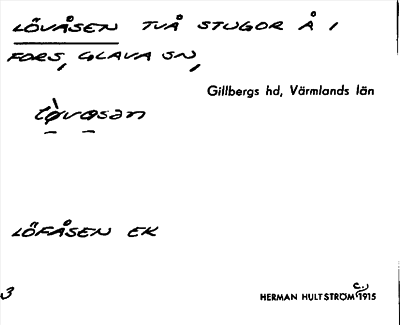 LÖVÅSEN TVÅ STUGOR Å 1
FORS, GLAVA SN,
Gillbergs hd, Värmlands län
LÖFÅSEN EK
3
HERMAN HULTSTRÖM C:J 1915